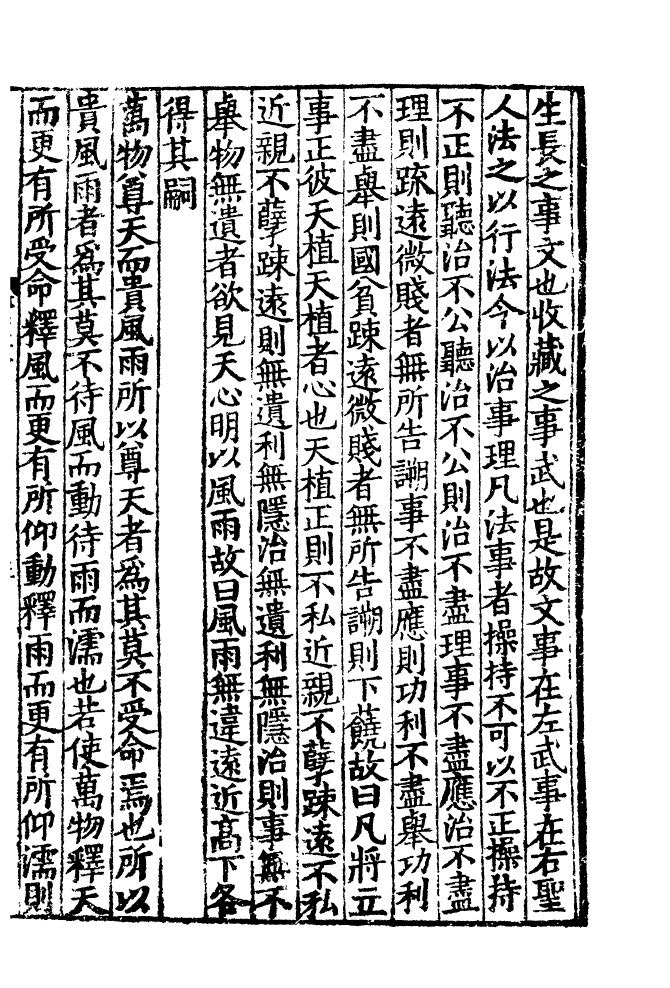 生長之事文也收藏之事武也是故文事在左武事在右聖
人法之以行法令以治事理凡法事者操持不可以不正操持
不正則聽治不公聽治不公則治不盡理事不盡應治不盡
理則踈遠微賤者無所告謝事不盡應則功利不盡舉功利
不盡舉則國貧踈遠微賤者無所告謝則下饒故曰凡將立
事正彼天植天植者心也天植正則不私近親不孽踈遠不私
近親不孽踈遠則無遺利無隱治無遺利無隱治則事無不
舉物無遺者欲見天心明以風雨故曰風雨無違遠近高下各
得其嗣
萬物尊天而貴風雨所以尊天者爲其莫不受命焉也所以
貴風雨者爲其莫不待風而動待雨而濡也若使萬物釋天
而更有所受命釋風而更有所仰動釋雨而更有所仰濡則